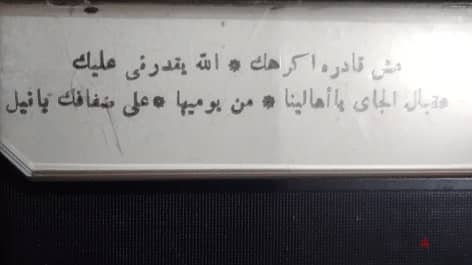 مش قادره اكرهك * الله يقدرنى عليك
عقبال الجاى ياأهالينا * من يوميها * على ضفافك يانيل